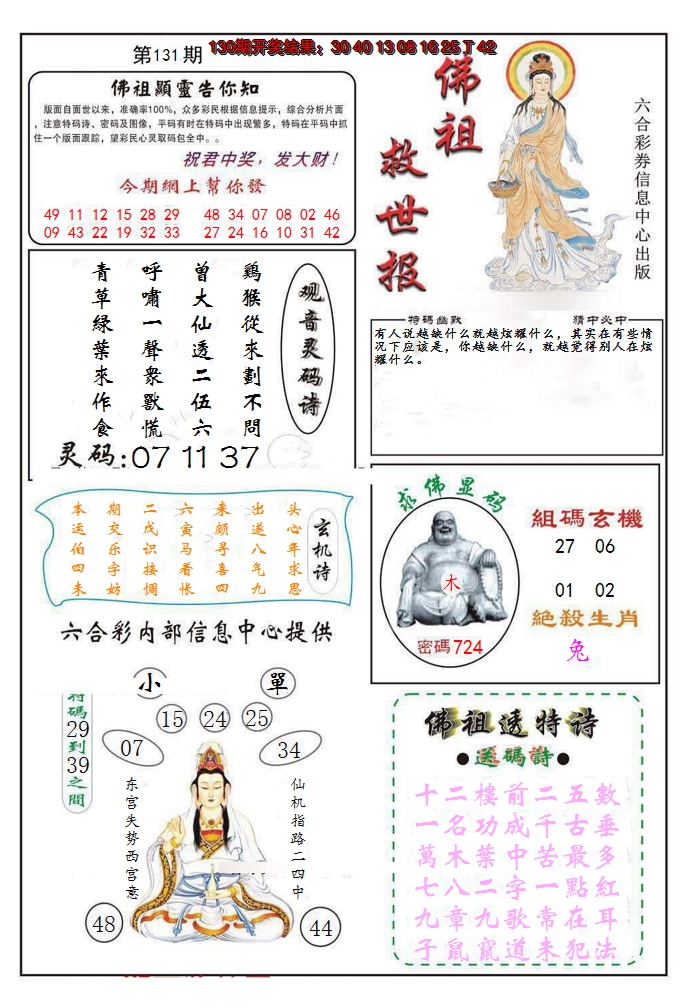 第131期
130期开奖结果：30 40 13 08 16 25 T 42
佛祖顯靈告你知
版面自面世以来，准确率100%，众多彩民根据信息提示，综合分析片面
，注意特码诗、密码及图像，平码有时在特码中出现繁多，特码在平码中抓
住一个版面跟踪，望彩民心灵取码包全中。。
祝君中奖，发大财！
今期網上幫你發
49 11 12 15 28 29 48 34 07 08 02 46
09 43 22 19 32 33 27 24 16 10 31 42
佛祖
救世报
六合彩券信息中心出版
观音灵码诗
鷄猴從來劃不問
曾大仙透二伍六
呼嘯一聲衆獸慌
青草緑葉來作食
灵码:07 11 37
特碼幽默
猜中必中
有人说越缺什么就越炫耀什么，其实在有些情
况下应该是，你越缺什么，就越觉得别人在炫
耀什么。
玄机诗
头心年求思
出遂八气九
来颇寻喜四
六寅马着怅
二戊识接惆
期交乐字妨
本运伯四未
六合彩内部信息中心提供
求佛显码
木
密碼724
組碼玄機
27 06
01 02
絕殺生肖
兔
小
單
特碼29到39之間
15 24 25
07
34
东宫失势西宫意
仙机指路二四中
48
44
佛祖透特诗
●送碼詩●
十二樓前二五數
一名功成千古垂
萬木葉中苦最多
七八二字一點紅
九章九歌常在耳
子鼠竄道未犯法